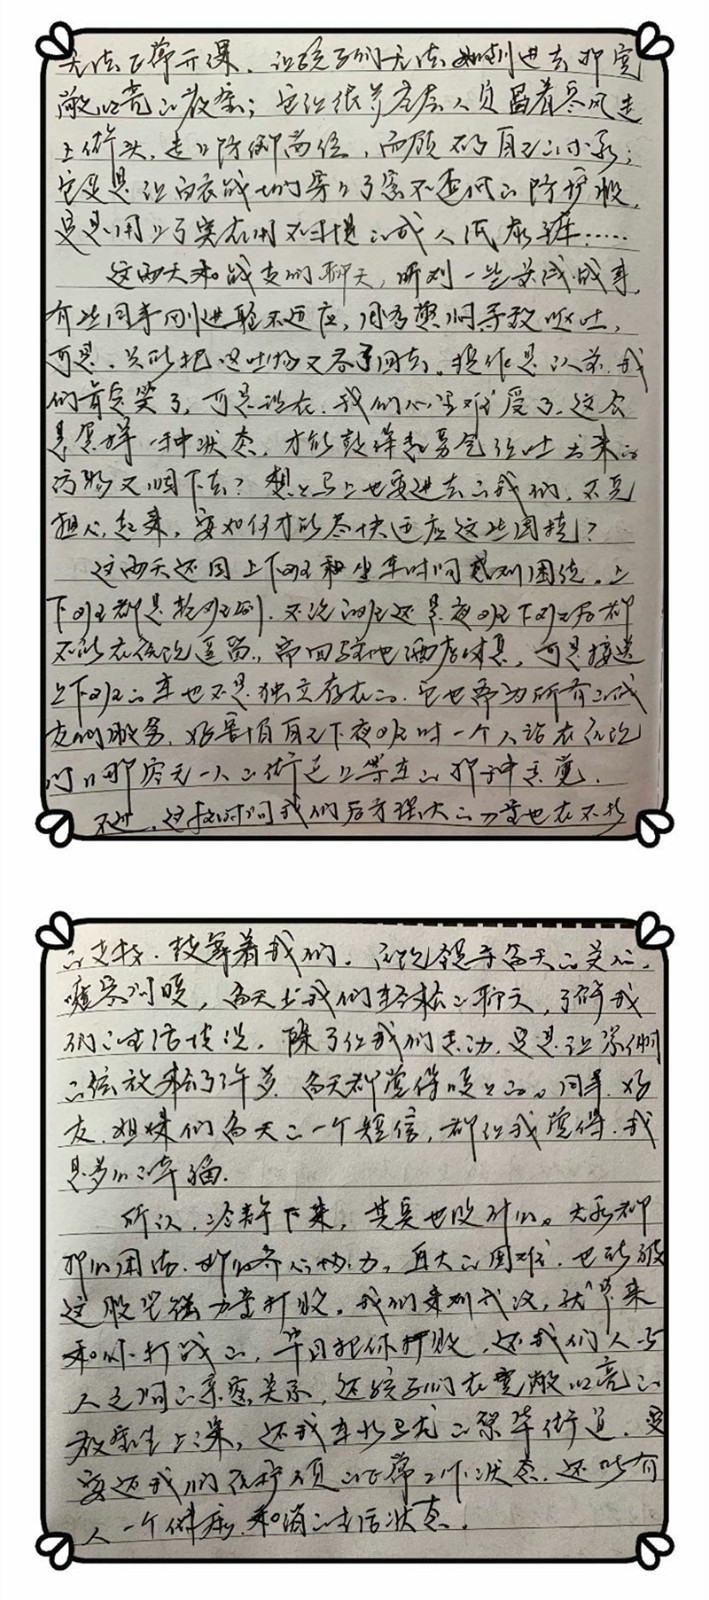 无法正常开课，让孩子们无法如期进去那宽
敞明亮的教室；它让很多居层人员冒着寒风走
上街头，走上防御岗位，而顾不得自己的小家；
它更是让白衣战士们穿上了密不透风的防护服，
更是用上了实在用不习惯的成人纸尿裤……
这两天和战友们聊天，听到一些亲战战事，
有些同事刚进舱不适应，闷香煩闷导致呕吐，
可是，只能把呕吐物又吞了回去。换作是以前，我
们肯定笑了，可是现在，我们心里难受了。这会
是怎样一种状态，才能鼓得起勇气将吐出来的
污物又咽下去？想想马上也要进去的我们，不免
担心起来，要如何才能尽快适应这些困境？
这两天还因上下班和坐车时间感到困扰。上
下班都是轮班制，不论白班还是夜班下班后都
不能在医院逗留，需回驻地酒店休息，可是接送
上下班的车也不是独立存在的，它也需为所有的战
友们服务，好害怕自己下夜班时一个人站在医院
门口那空无一人的街道上等车的那种感觉。
不过，这段时间我们后方强大的力量也在不断
的支持、鼓舞着我们。医院领导每天的关心，
嘘寒问暖，每天与我们轻松的聊天，了解我
们的生活情况，除了让我们感动，更是让紧绷
的弦放松了许多，每天都觉得暖暖的。同事、好
友、姐妹们每天的一个短信，都让我觉得，我
是多么的幸福。
所以，冷静下来，其实也没什么。大家都
那么团结，那么齐心协力，再大的困难，也能被
这股坚强力量打败。我们来到武汉，就是来
和你打战的，早日把你打败，还我们人与
人之间的亲密关系，还孩子们在宽敞明亮的
教室里上课，还我车水马龙的繁华街道，更
要还我们医护人员的正常工作状态，还所有
人一个健康、和谐的生活状态。